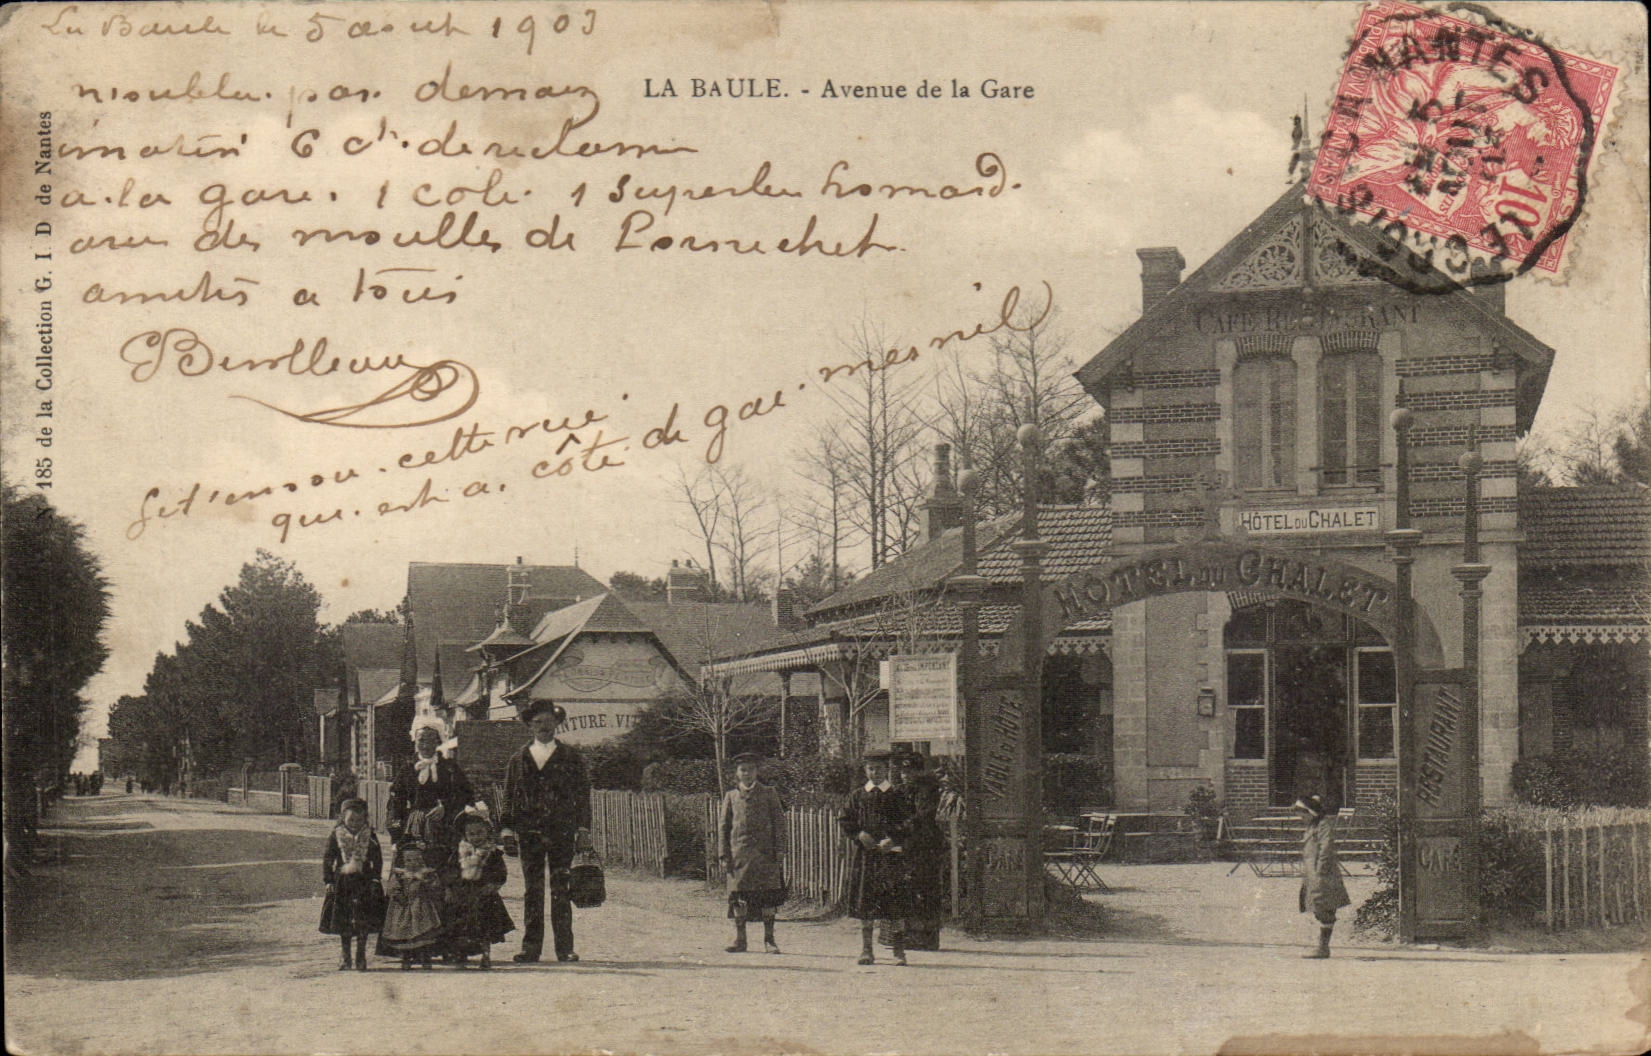 La Baule le 5 aout 1903
LA BAULE. - Avenue de la Gare
noublie pas demain
matin 6 ch. de reclamer
a la gare. 1 colis. 1 superbe homard.
avec des moulles de Pornichet
amitiés a tous
Je t'envoie cette vue
qui est a côté de gai mesnil
N 185 de la Collection G. I D de Nantes
NANTES
LE CROISIC
10
CAFÉ RESTAURANT
HÔTEL DU CHALET
HÔTEL DU CHALET
TABLE D'HÔTE
CAFÉ
RESTAURANT
CAFÉ